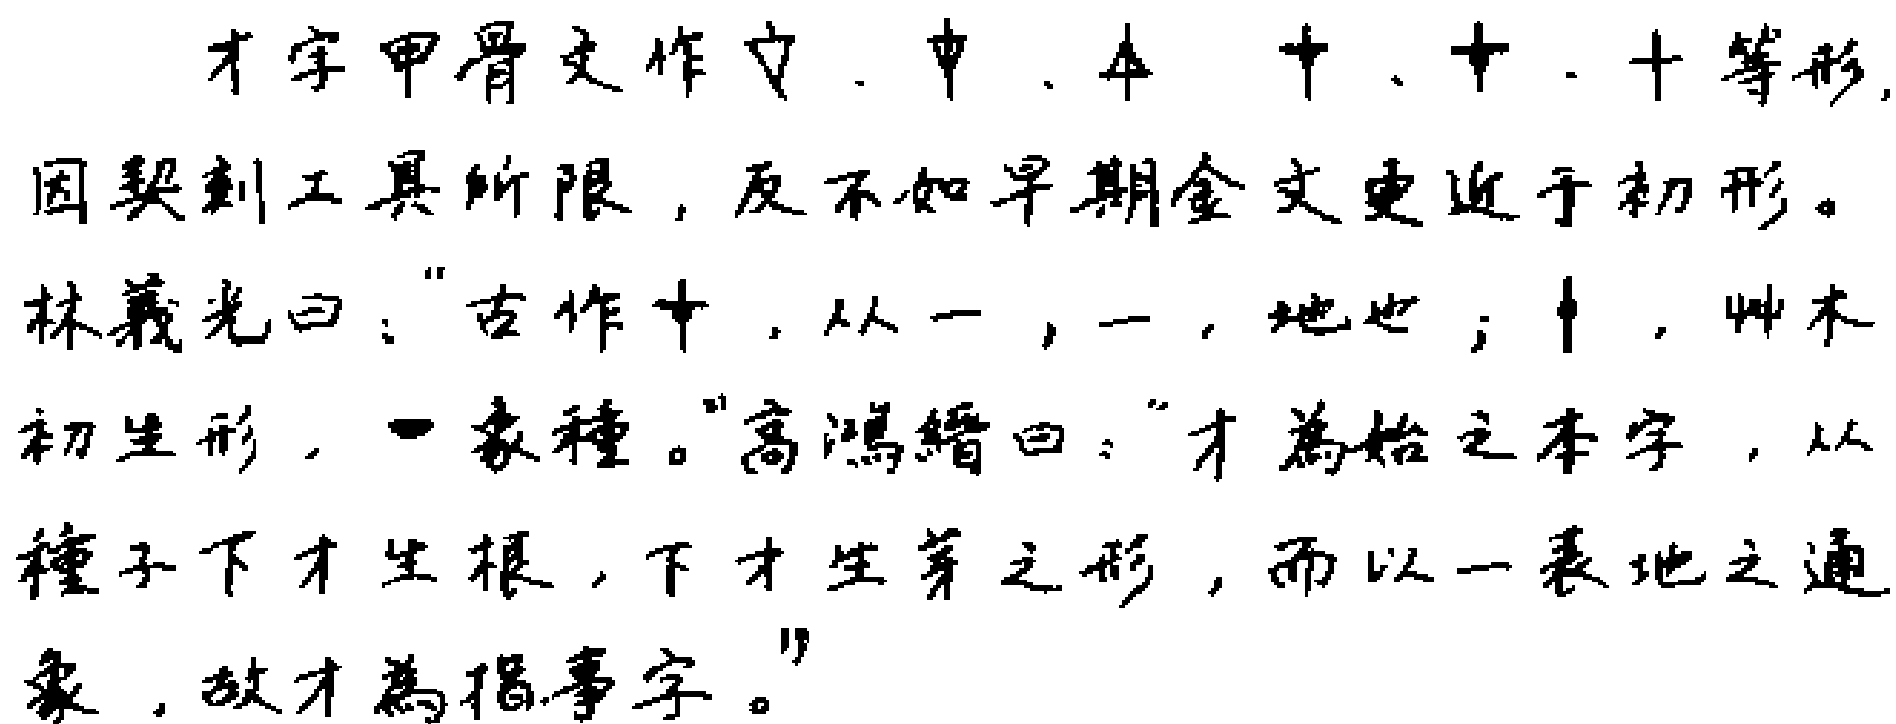 才字甲骨文作、、、、等形,
因契刻工具所限,反不如早期金文更近于初形。
林義光曰:"古作,从一,一,地也;,艸木
初生形,象種。"高鴻縉曰:"才為始之本字,从
種子下才生根,下才生芽之形,而以一表地之通
象,故才為指事字。"